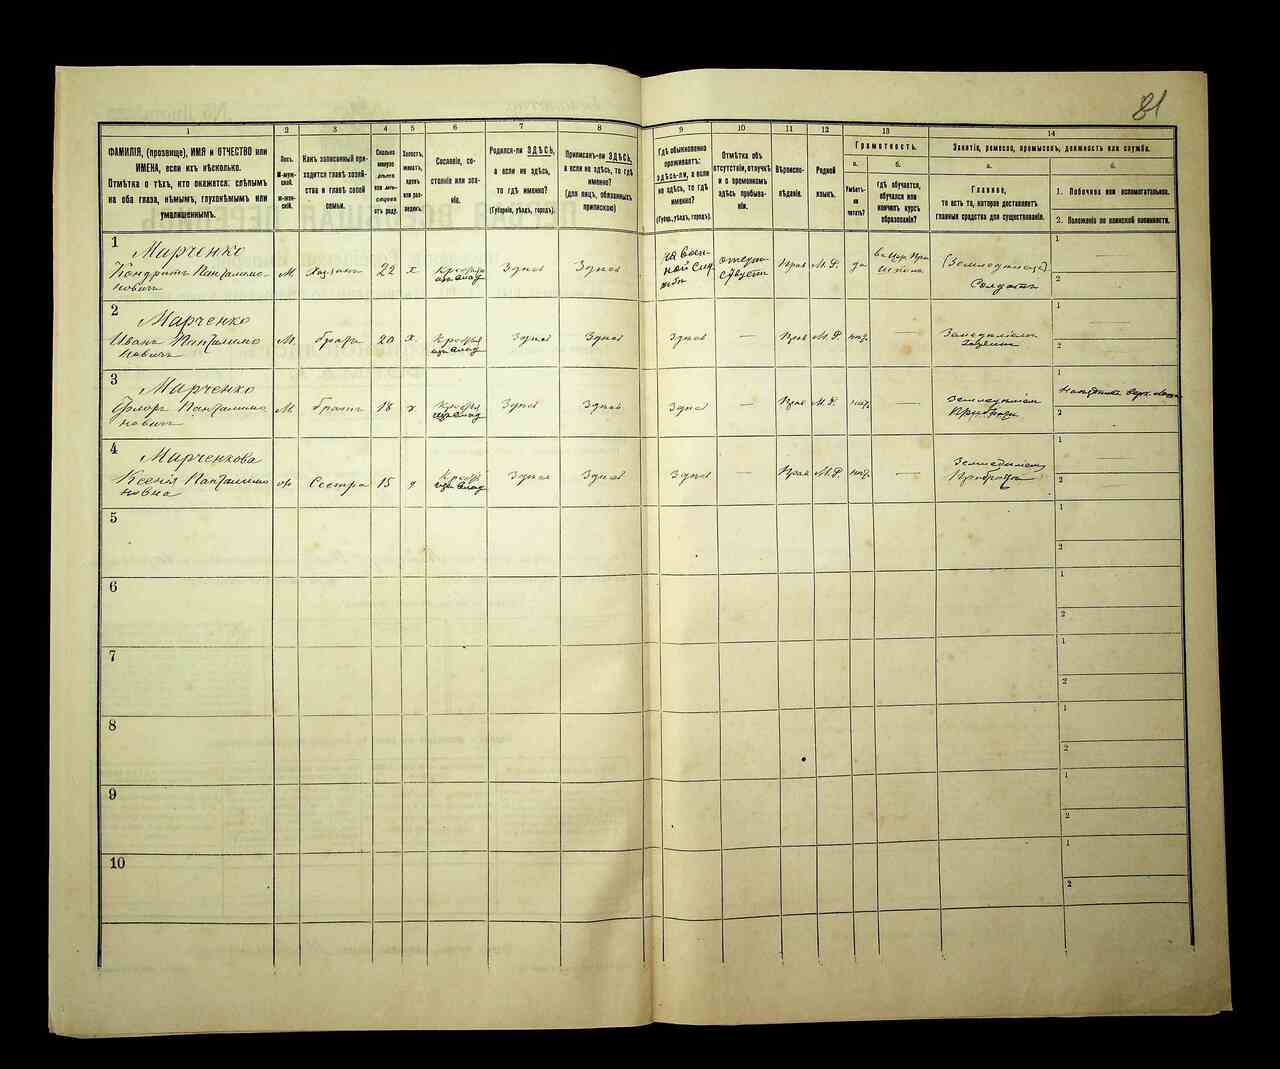 81
1
ФАМИЛІЯ, (прозвище), ИМЯ и ОТЧЕСТВО или
ИМЕНА, если ихъ нѣсколько.
Отмѣтка о тѣхъ, кто окажется: слѣпымъ
на оба глаза, нѣмымъ, глухонѣмымъ или
умалишеннымъ.
2
Полъ.
М-муж-
ской.
Ж-жен-
скій.
3
Какъ записанный при-
ходится главѣ хозяй-
ства и главѣ своей
семьи.
4
Сколько
минуло
лѣтъ
или мѣ-
сяцевъ
отъ роду.
5
Холостъ,
женатъ,
вдовъ
или раз-
веденъ.
6
Сословіе, со-
стояніе или зва-
ніе.
7
Родился-ли ЗДѢСЬ,
а если не здѣсь,
то гдѣ именно?
(Губернія, уѣздъ, городъ).
8
Приписанъ-ли ЗДѢСЬ,
а если не здѣсь, то гдѣ
именно?
(для лицъ, обязанныхъ
припискою)
9
Гдѣ обыкновенно
проживаетъ:
здѣсь-ли, а если
не здѣсь, то гдѣ
именно?
(Губерн., уѣздъ, городъ).
10
Отмѣтка объ
отсутствіи, отлучкѣ
и о временномъ
здѣсь пребыва-
ніи.
11
Вѣроиспо-
вѣданіе.
12
Родной
языкъ.
13
Грамотность.
а.
Умѣетъ-
ли
читать?
б.
гдѣ обучается,
обучался или
кончилъ курсъ
образованія?
14
Занятіе, ремесло, промыселъ, должность или служба.
а.
Главное,
то есть то, которое доставляетъ
главныя средства для существованія.
б.
1. Побочное или вспомогательное.
2. Положеніе по воинской повинности.
1
Марченко
Кондратъ Пантелимо-
новичъ
М
Хозяинъ
22
х
Здѣсь
Здѣсь
на воен-
ной Слу
жбѣ
Прав
М.Р.
да
Солдатъ
1
2
2
Марченко
Иванъ Пантелимо
новичъ
М
братъ
20
х
Здѣсь
Здѣсь
Здѣсь
—
Прав
М.Р.
нѣт
—
1
2
3
Марченко
Флоръ Пантелимо
новичъ
М
братъ
18
х
Здѣсь
Здѣсь
Здѣсь
—
Прав
М.Р.
нѣт
—
1
2
4
Марченкова
Ксенія Пантелимо
новна
ж
Сестра
15
Здѣсь
Здѣсь
Здѣсь
—
Прав
М.Р.
нѣт
—
1
2
5
1
2
6
1
2
7
1
2
8
1
2
9
1
2
10
1
2